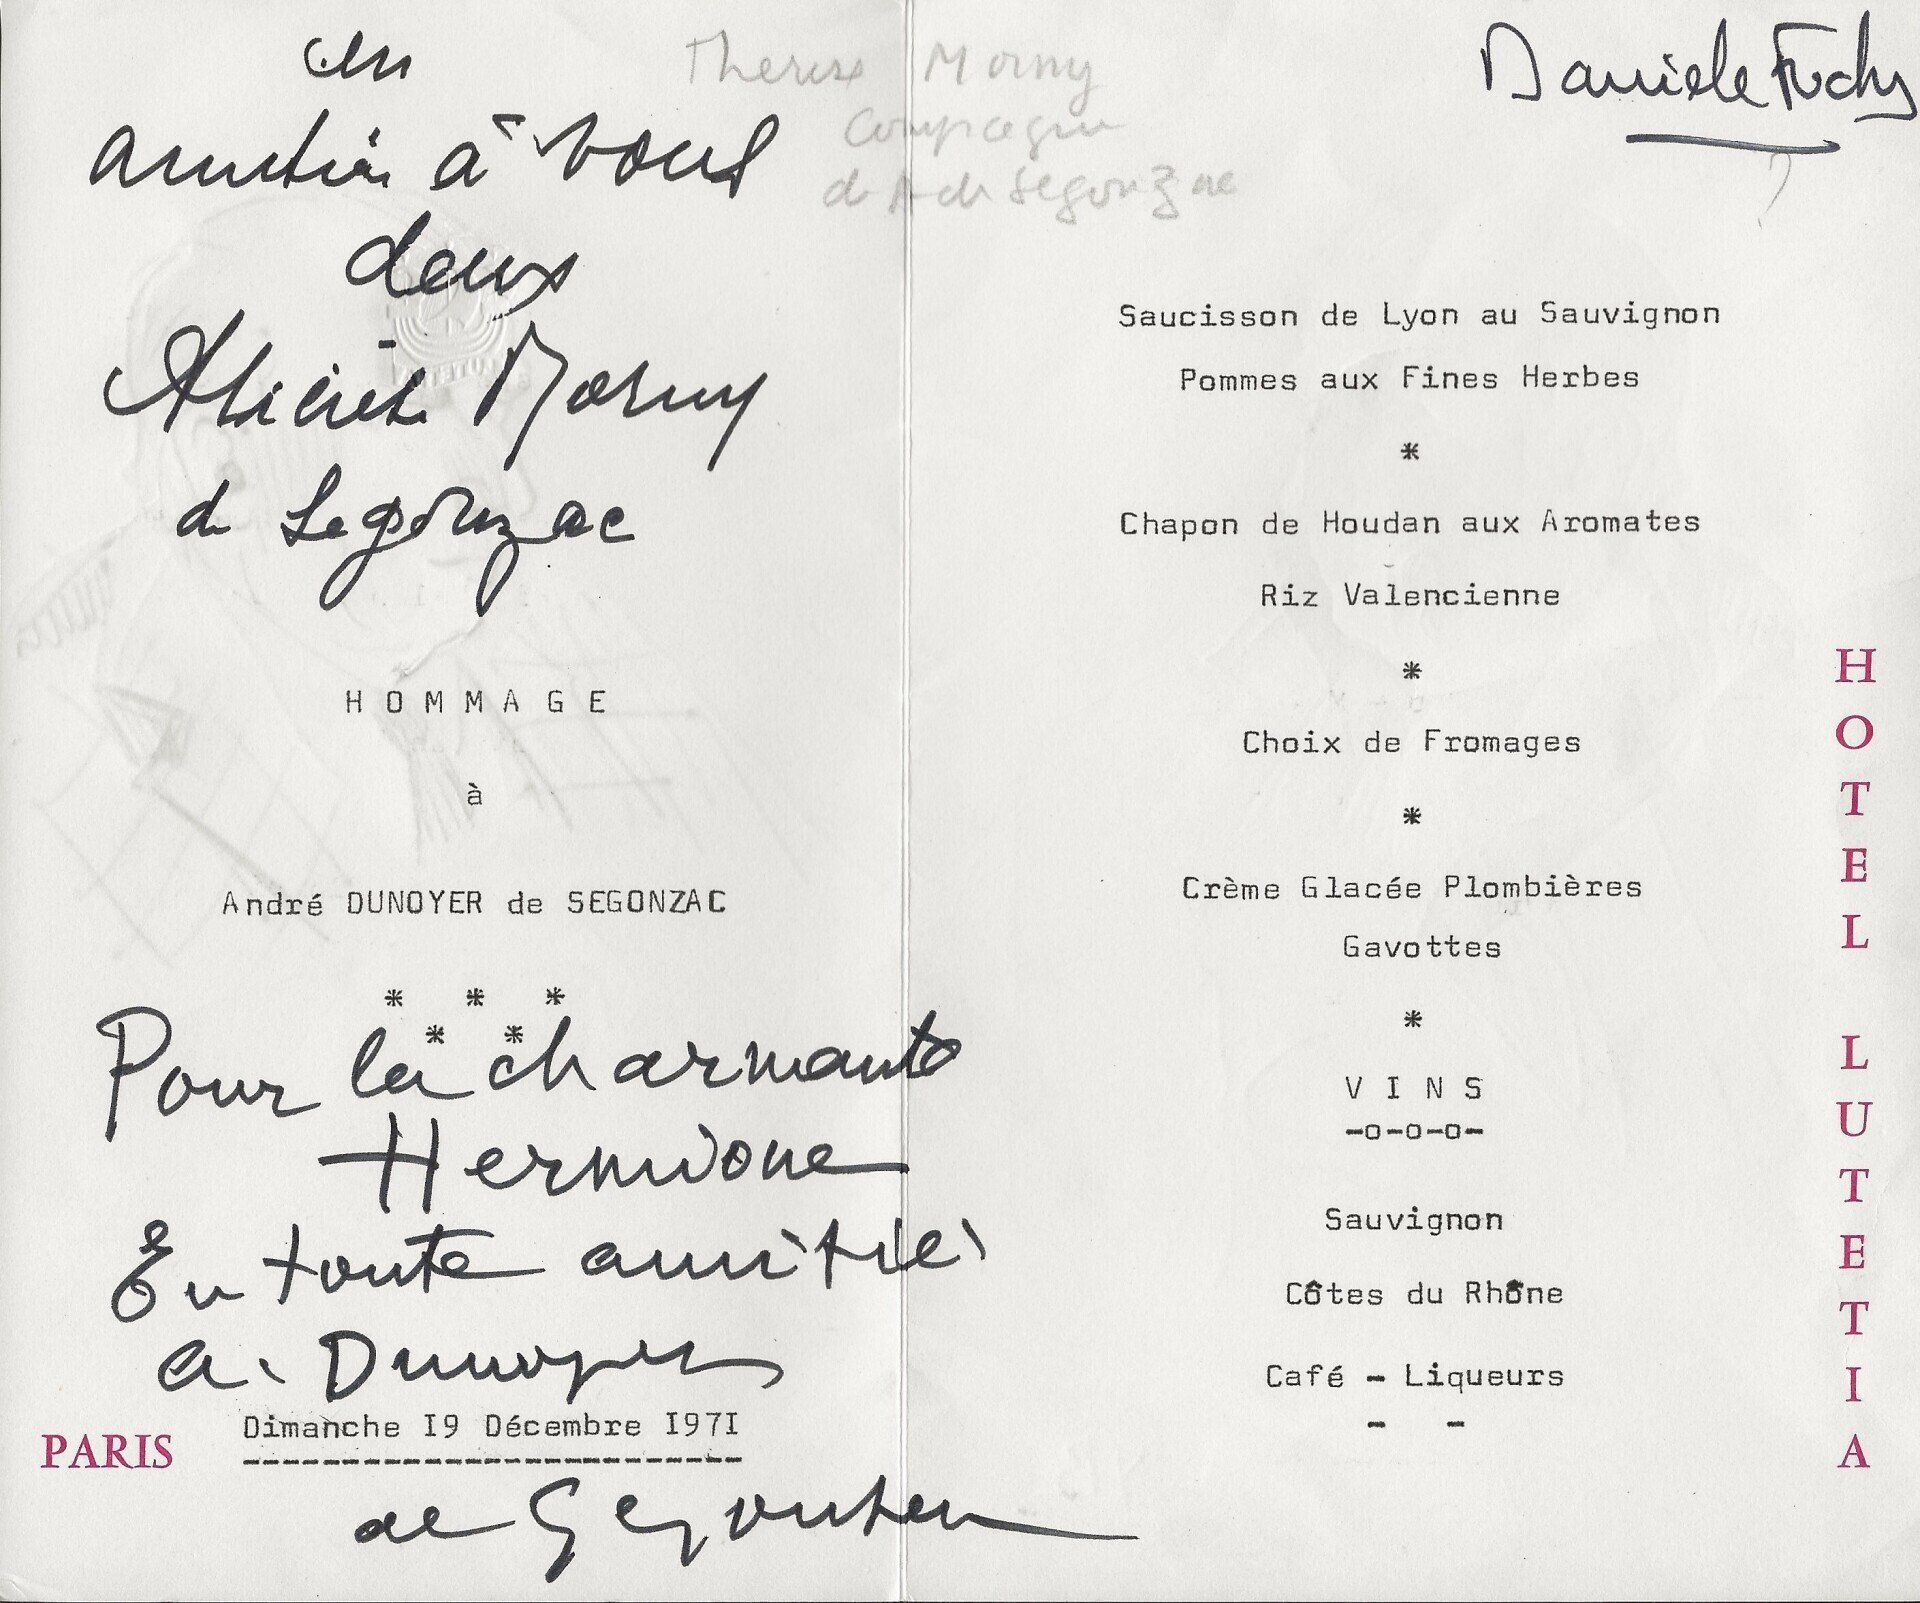 en
amitié à vous
deux
Thérèse Dorny
de Segonzac
Therese Dorny
Compagne
de A de Segonzac
Daniele Fuchs
?
HOMMAGE
à
André DUNOYER de SEGONZAC
* * *
* *
Pour la charmante
Hermione
En toute amitié
a. Dunoyer
Dimanche I9 Décembre I97I
de Segonzac
PARIS
Saucisson de Lyon au Sauvignon
Pommes aux Fines Herbes
*
Chapon de Houdan aux Aromates
Riz Valencienne
*
Choix de Fromages
*
Crème Glacée Plombières
Gavottes
*
VINS
-o-o-o-
Sauvignon
Côtes du Rhône
Café - Liqueurs
- -
HOTEL LUTETIA